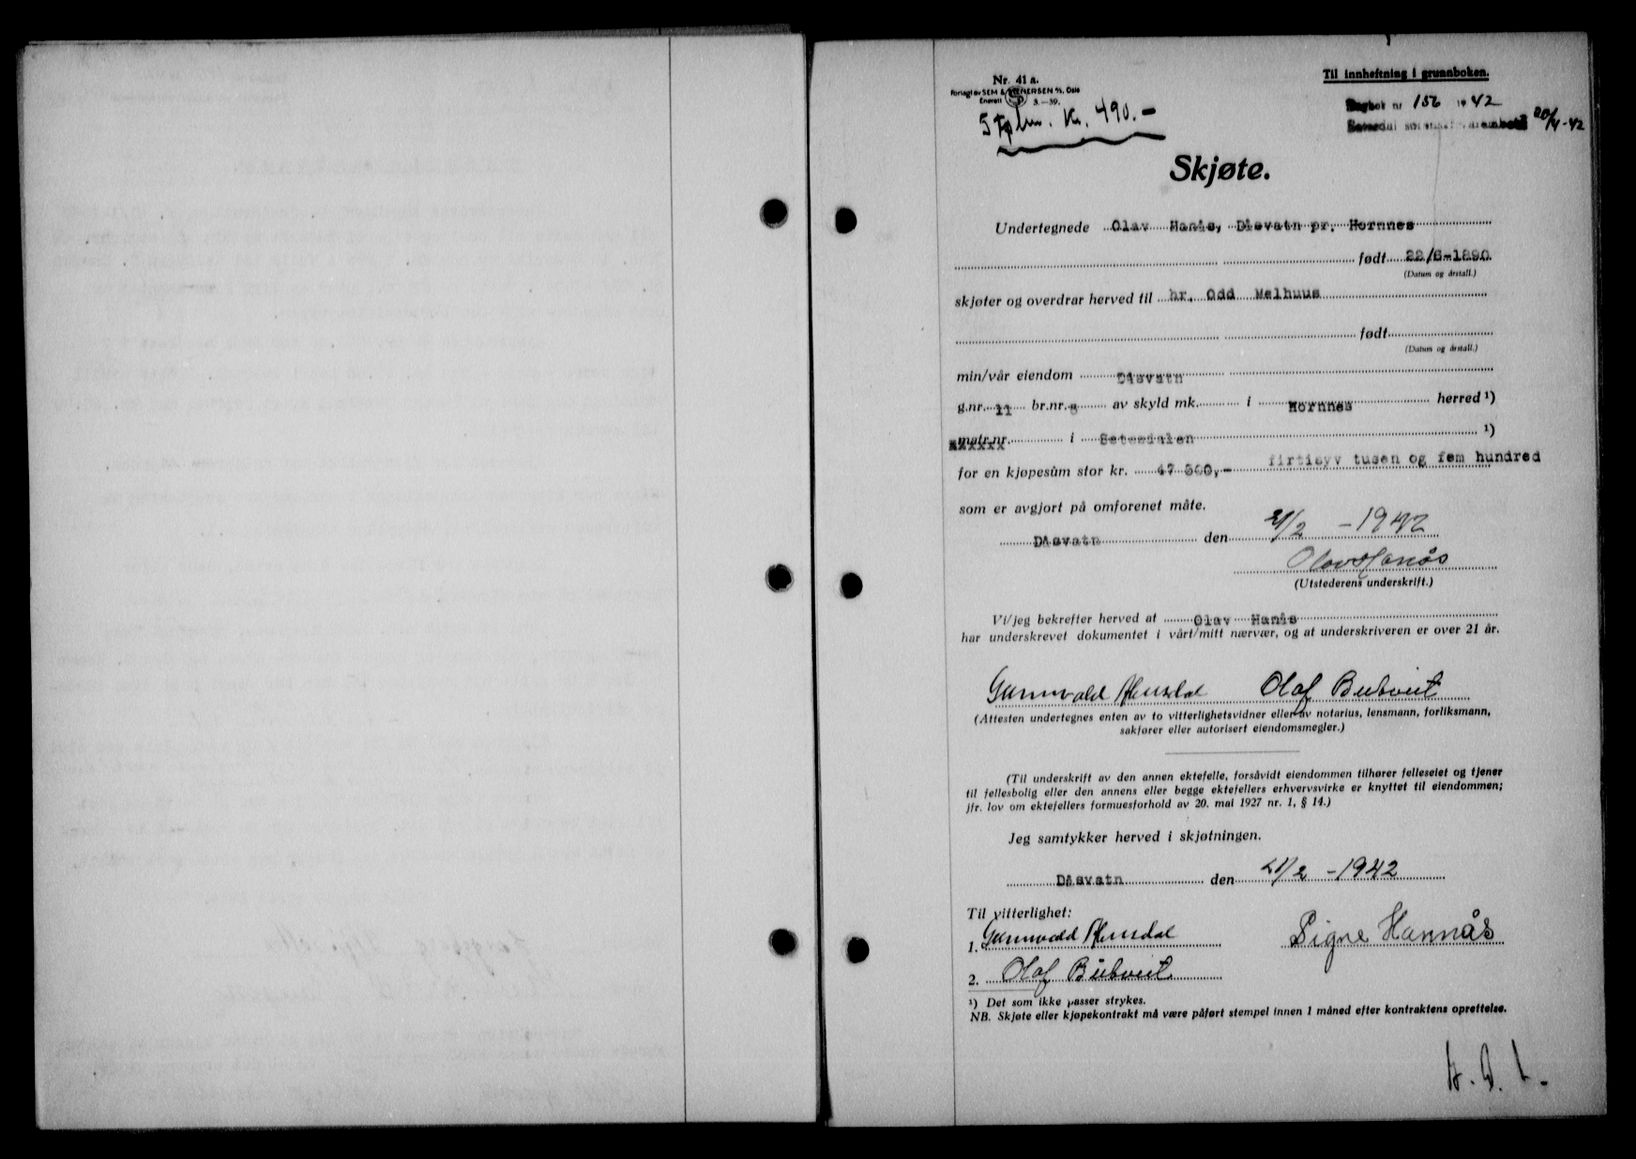 Nr. 41 a.
Forlagt av SEM & STENERSEN A/S, Oslo
Enerett 3.—39.
Stplm. Kr. 490.-
Til innheftning i grunnboken.
Dagbok nr 156 1942
Setesdal sorenskriverembete 20/4-42
Skjøte.
Undertegnede Olav Hanås, Dåsvatn pr. Hornnes
født 22/6-1890
(Datum og årstall.)
skjøter og overdrar herved til hr. Odd Melhuus
født
(Datum og årstall.)
min/vår eiendom Dåsvatn
g.nr. 11 br.nr. 8 av skyld mk. i Hornnes herred ¹)
matr.nr. i Setesdalen ¹)
for en kjøpesum stor kr. 47 500,- firtisyv tusen og fem hundred
som er avgjort på omforenet måte.
Dåsvatn den 21/2 - 1942
Olav Hanås
(Utstederens underskrift.)
Vi/jeg bekrefter herved at Olav Hanås
har underskrevet dokumentet i vårt/mitt nærvær, og at underskriveren er over 21 år.
Gunnvald Olaf
(Attesten undertegnes enten av to vitterlighetsvidner eller av notarius, lensmann, forliksmann,
sakfører eller autorisert eiendomsmegler.)
(Til underskrift av den annen ektefelle, forsåvidt eiendommen tilhører felleseiet og tjener
til fellesbolig eller den annens eller begge ektefellers erhvervsvirke er knyttet til eiendommen;
jfr. lov om ektefellers formuesforhold av 20. mai 1927 nr. 1, § 14.)
Jeg samtykker herved i skjøtningen.
Dåsvatn den 21/2 - 1942
Til vitterlighet:
1. Gunnvald
Signe Hannås
2. Olaf
¹) Det som ikke passer strykes.
NB. Skjøte eller kjøpekontrakt må være påført stempel innen 1 måned efter kontraktens oprettelse.